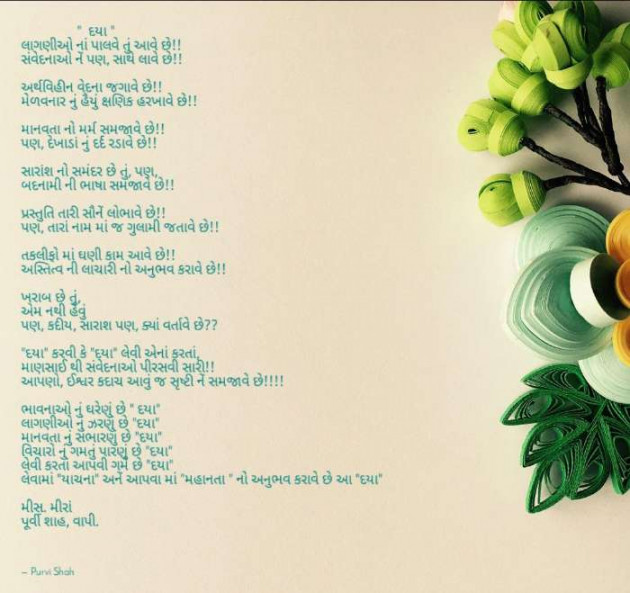 " દયા "
લાગણીઓ નાં પાલવે તું આવે છે!!
સંવેદનાઓ નેં પણ, સાથે લાવે છે!!
અર્થવિહીન વેદના જગાવે છે!!
મેળવનાર નું હૈયું ક્ષણિક હરખાવે છે!!
માનવતા નો મર્મ સમજાવે છે!!
પણ, દેખાડાં નું દર્દ રડાવે છે!!
સારાંશ નો સમંદર છે તું, પણ,
બદનામી ની ભાષા સમજાવે છે!!
પ્રસ્તુતિ તારી સૌનેં લોભાવે છે!!
પણ, તારાં નામ માં જ ગુલામી જતાવે છે!!
તકલીફો માં ઘણી કામ આવે છે!!
અસ્તિત્વ ની લાચારી નો અનુભવ કરાવે છે!!
ખરાબ છે તું,
એમ નથી હેંવું
પણ, કદીય, સારાશ પણ, ક્યાં વર્તાવે છે??
"દયા" કરવી કે "દયા" લેવી એનાં કરતાં,
માણસાઈ થી સંવેદનાઓ પીરસવી સારી!!
આપણો, ઈશ્વર કદાચ આવું જ સૃષ્ટી નેં સમજાવે છે!!!!
ભાવનાઓ નું ઘરેણું છે " દયા"
લાગણીઓ નું ઝરણું છે "દયા"
માનવતા નું સંભારણું છે "દયા"
વિચારો નું ગમતું પારણું છે "દયા"
લેવી કરતાં આપવી ગમે છે "દયા"
લેવામાં "યાચના" અનેં આપવા માં "મહાનતા " નો અનુભવ કરાવે છે આ "દયા"
મીસ. મીરાં
પૂર્વી શાહ, વાપી.
– Purvi Shah